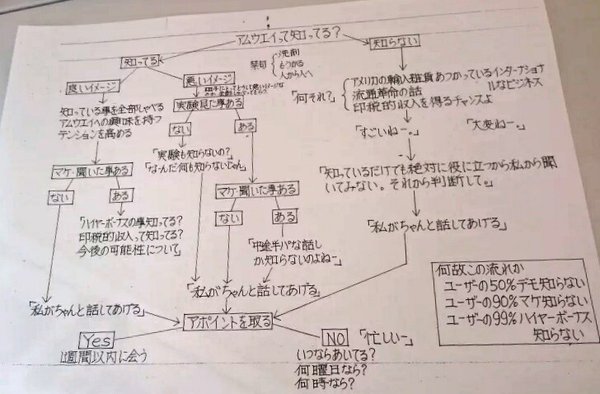 アムウエイって知ってる?
知ってる
禁句
洗剤
もうかる
人から人へ
知らない
良いイメージ
悪いイメージ
知っている事を全部しゃべる
アムウエイへの興味を持つ
テンションを高める
実験見た事ある
ない
ある
「何それ?」
アメリカの輸入雑貨あつかっているインターナショナルなビジネス
流通革命の話
印税的収入を得るチャンスよ
「すごいねー。」
「大変ねー。」
「実験も知らないの?」
「な~だ何も知らないじゃん」
「知っているだけでも絶対に役に立つから私から聞いてみない。それから判断して。」
マケ・聞いた事ある
ない
ある
マケ・聞いた事ある
ない
ある
「ハイヤーボーナスの事知ってる?
印税的収入って知ってる?
今後の可能性について」
「中途半パな話しか知らないのよねー」
「私がちゃんと話してあげる」
「私がちゃんと話してあげる」
「私がちゃんと話してあげる」
何故この流れか
ユーザーの50%デモ知らない
ユーザーの90%マケ知らない
ユーザーの99%ハイヤーボーナス
知らない
アポイントを取る
Yes
1週間以内に会う
NO
「忙しいー」
いつならあいてる?
何曜日なら?
何時なら?